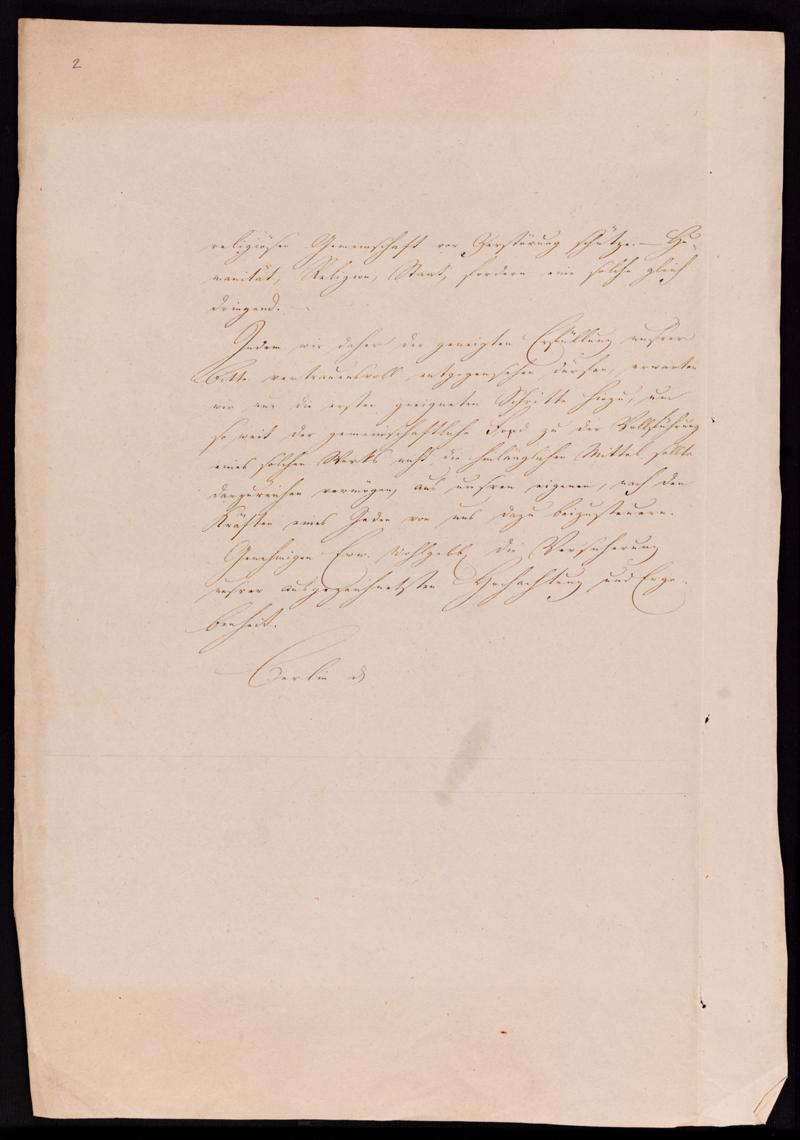 2
religiösen Gemeinschaft vor Zerstörung schütze. — Hu-
manität, Religion, Staat, fordern eine solche gleich
dringend. —
Indem wir daher der geneigten Erfüllung unsrer
Bitte vertrauensvoll entgegensehen dürfen, erwarten
wir nur die ersten geeigneten Schritte hiezu, um
so weit der gemeinschaftliche Fond zu der Vollführung
eines solchen Werks nicht die hinlänglichen Mittel sollte
darzureichen vermögen, aus unsren eigenen, nach den
Kräften eines Jeden von uns dazu beizusteuern.
Genehmigen Ew. Wohlgeb. die Versicherung
unsrer ausgezeichnetsten Hochachtung und Erge-
benheit.
Berlin d